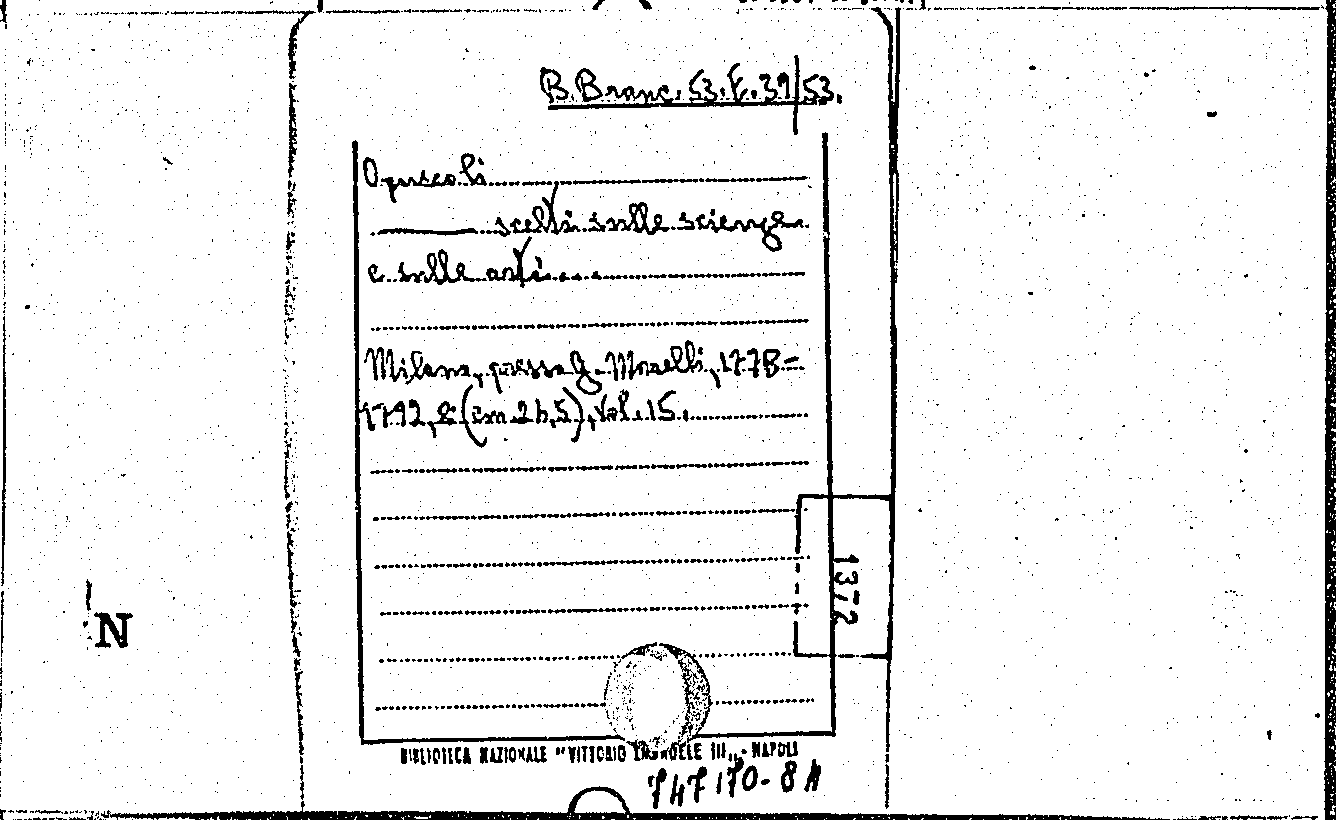 B. Branc. 53. E. 39/53.
Opuscoli
scelti sulle scienze
e sulle arti....
Milano, presso G. Marelli, 1778-
1792, 8° (cm. 26,5), vol. 15.
1372
N
BIBLIOTECA NAZIONALE "VITTORIO EMANUELE III" - NAPOLI
747170-8A